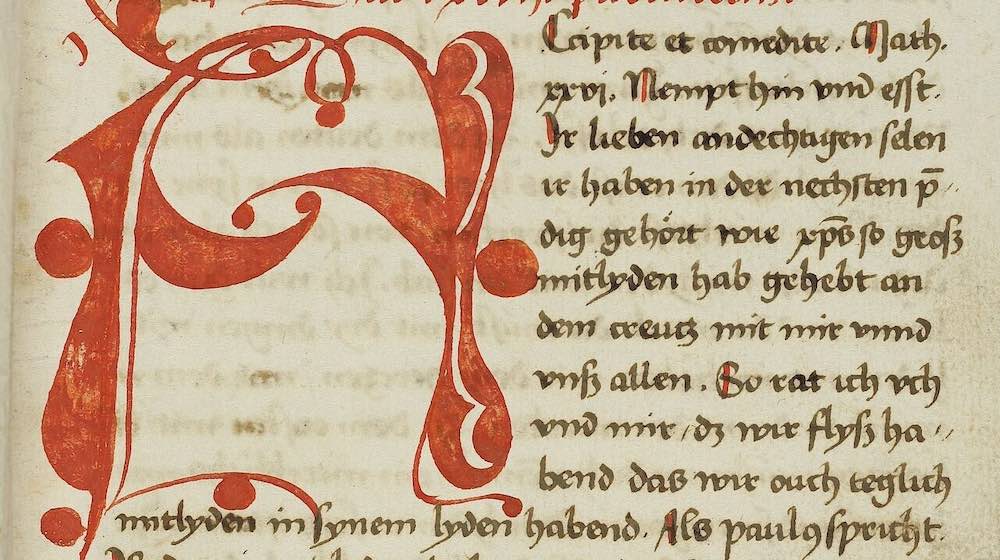 Accipite et comedite. Math.
xxvi. Nempt hin vnd esst.
Ir lieben andechtigen selen
ir haben in der nechsten p̄-
dig gehört wie xp̄s so groß
mitlyden hab gehebt an
dem creutz mit mir vnnd
vnß allen. So rat ich vch
vnd mir, dz wir flyß ha-
bend das wir ouch teglich
mitlyden in synem lyden habend. Als paulꝰ spricht.